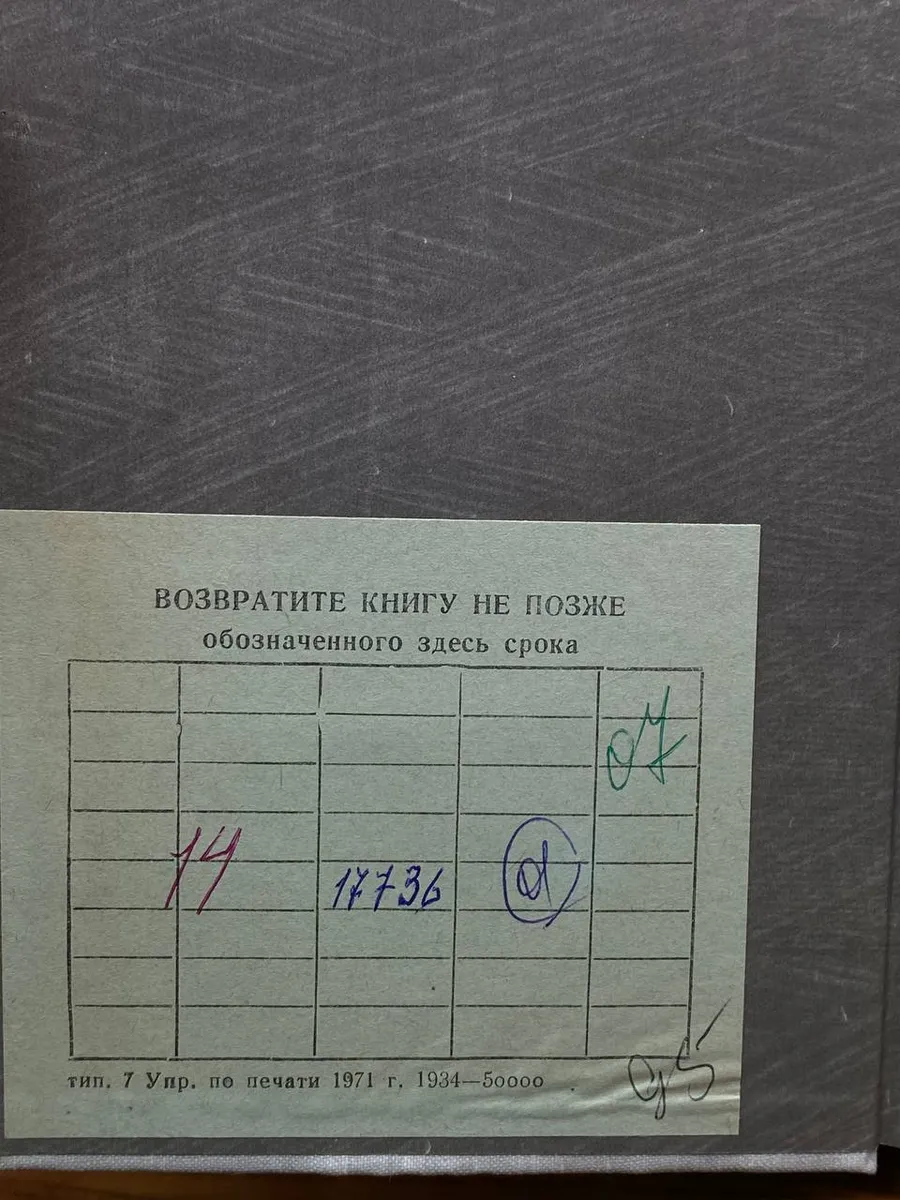 ВОЗВРАТИТЕ КНИГУ НЕ ПОЗЖЕ
обозначенного здесь срока
07
14
17736
тип. 7 Упр. по печати 1971 г. 1934—50000
95